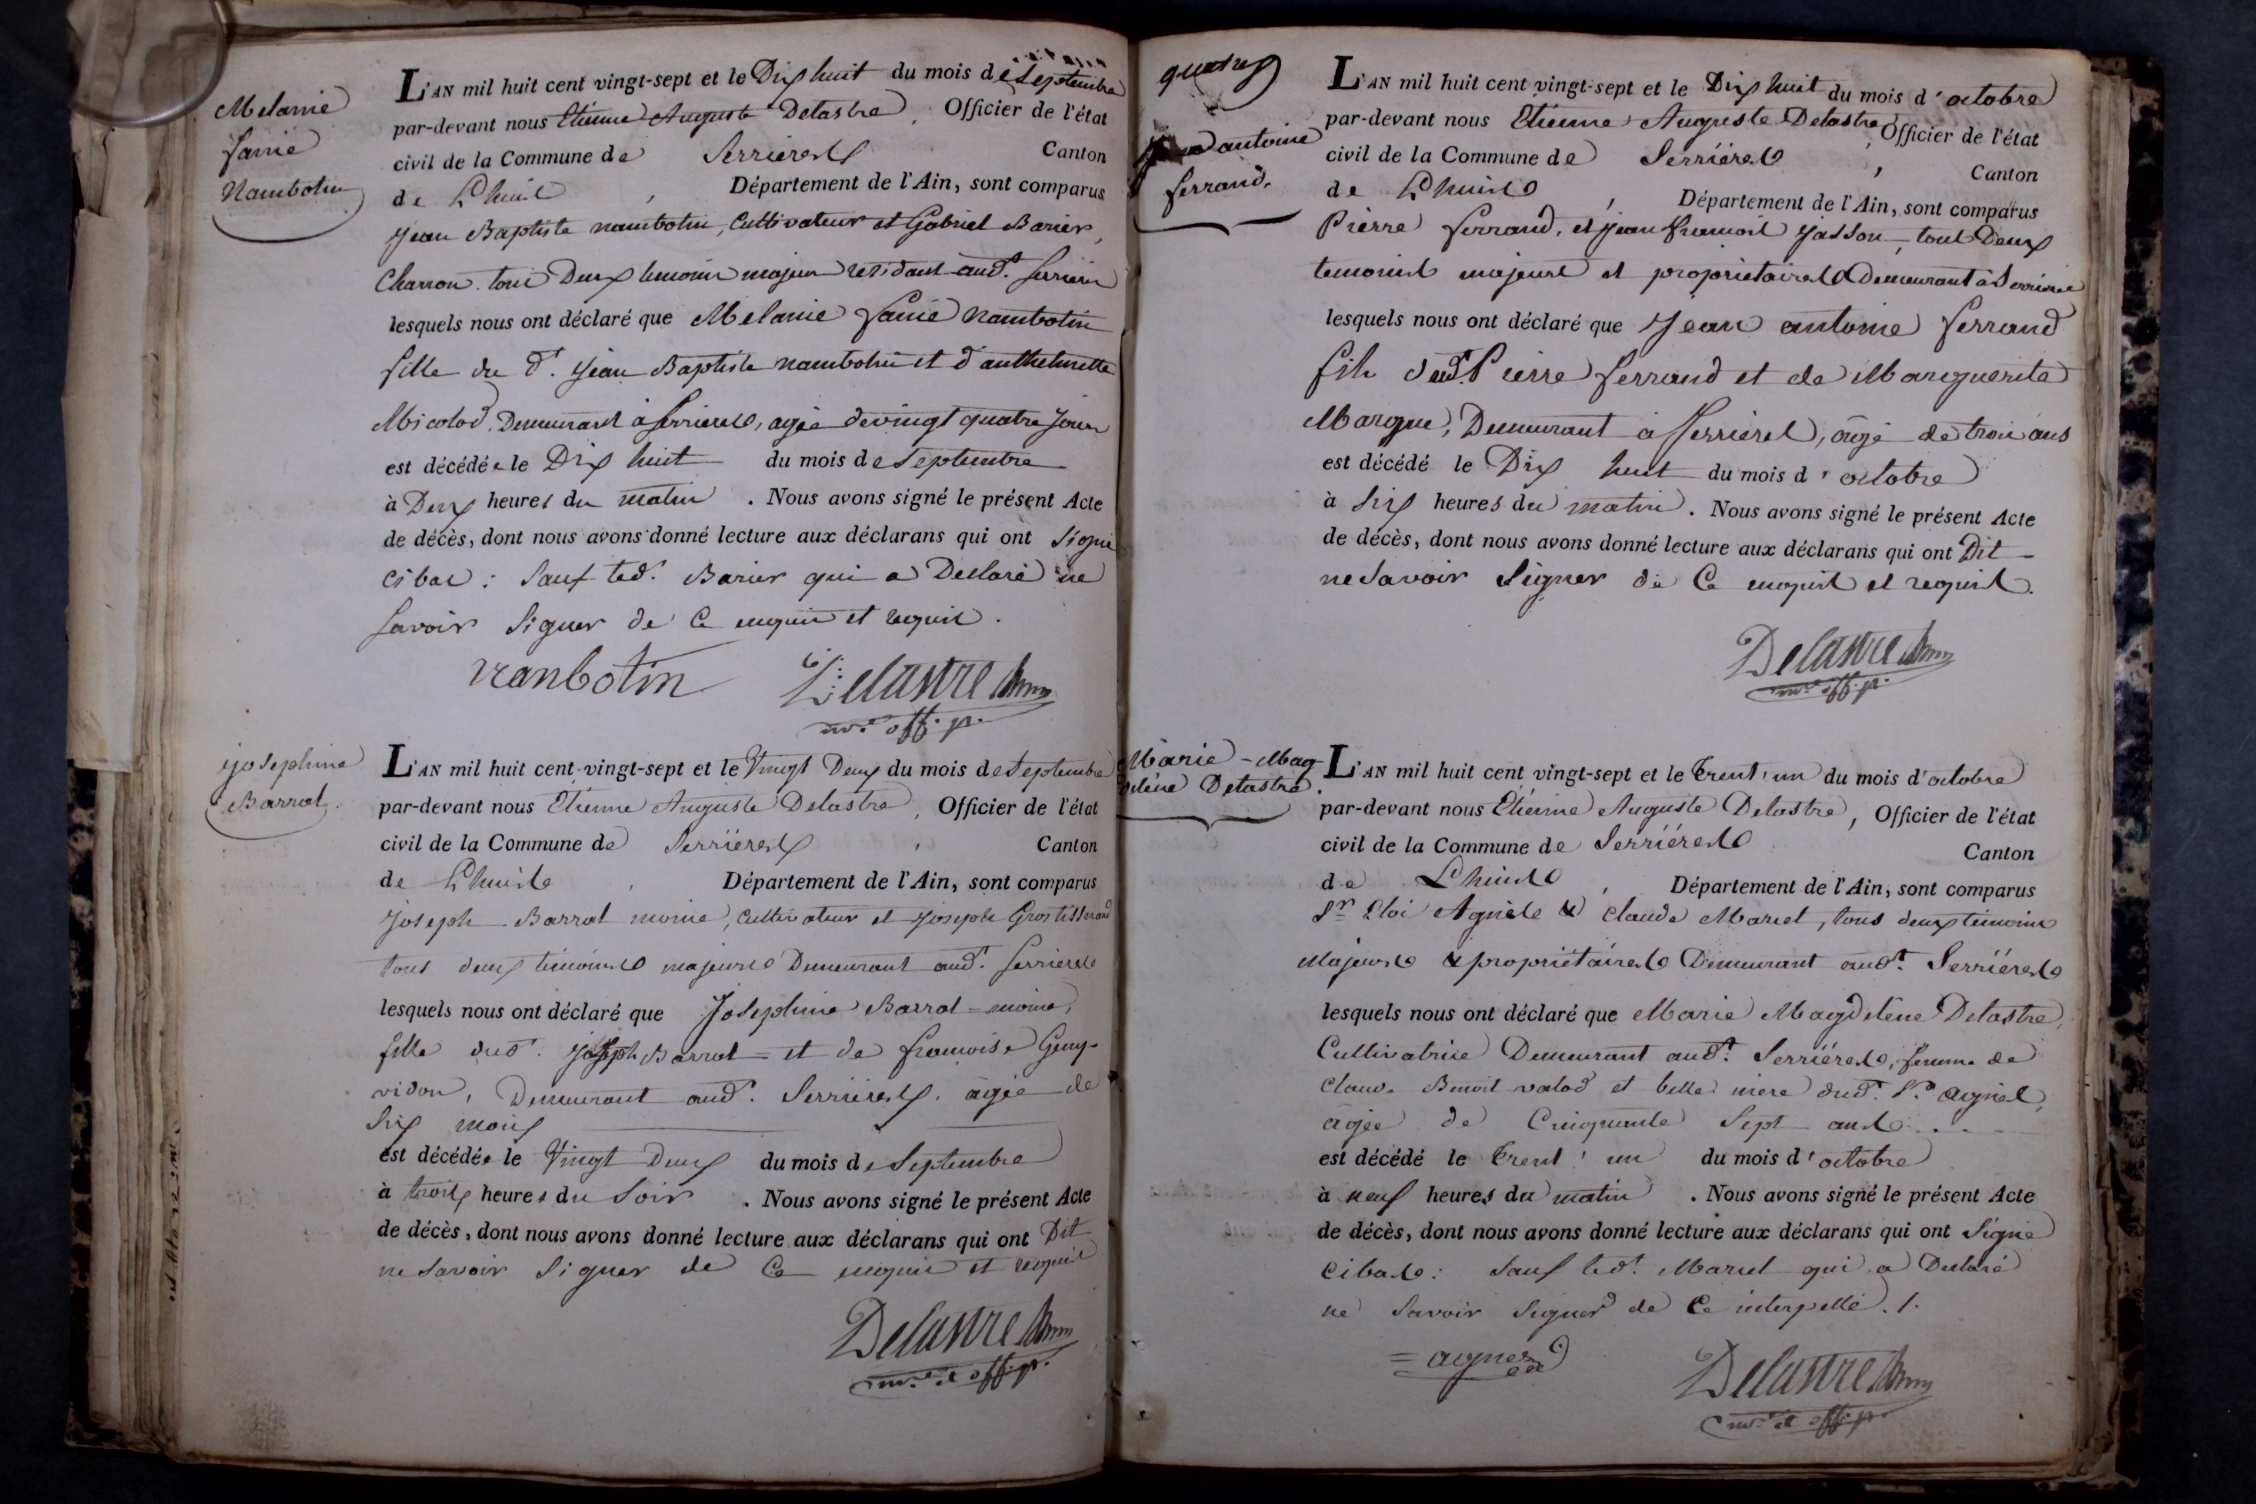 Melanie
fanie
Nambotin
L'AN mil huit cent vingt-sept et le Dix huit du mois de Septembre
par-devant nous Etienne Auguste Delastre, Officier de l'état
civil de la Commune de Serrieres Canton
de Lhuis, Département de l'Ain, sont comparus
jean Baptiste nambotin, Cultivateur et Gabriel Barier,
Charron tous Deux temoins majeurs residant aud.t Serrieres
lesquels nous ont déclaré que Melanie fanie nambotin
fille du d.t jean Baptiste nambotin et d'anthelmette
Micolod, Demeurant à Serrieres, agée de vingt quatre jours
est décédée le Dix huit du mois de Septembre
à Deux heures du matin. Nous avons signé le présent Acte
de décès, dont nous avons donné lecture aux déclarans qui ont Signé
cibas: Sauf led.t Barier qui a Declaré ne
savoir Signer de Ce enquis et requis.
nanbotin Delastre
off. p.
josephine
Barrat.
L'AN mil huit cent vingt-sept et le Vingt Deux du mois de Septembre
par-devant nous Etienne Auguste Delastre, Officier de l'état
civil de la Commune de Serriéres, Canton
de Lhuis, Département de l'Ain, sont comparus
joseph Barrat moine, cultivateur et joseph Grostisserand
tous deux témoins majeurs Demeurant aud.t Serrieres
lesquels nous ont déclaré que Josephine Barrat = moine,
fille dud.t joseph Barrat = et de françoise Guny-
vidon, Demeurant aud.t Serriéres, agée de
Six mois
est décédée le Vingt Deux du mois de Septembre
à trois heures du Soir. Nous avons signé le présent Acte
de décès, dont nous avons donné lecture aux déclarans qui ont Dit
ne Savoir Signer de Ce enquis et requis
Delastre
off. p.
jean antoine
ferrand.
L'AN mil huit cent vingt-sept et le Dix huit du mois d'octobre
par-devant nous Etienne Auguste Delastre, Officier de l'état
civil de la Commune de Serriéres, Canton
de Lhuis, Département de l'Ain, sont comparus
Pierre ferrand, et jean françois jasson, tous Deux
temoins majeurs et proprietaires Demeurant à Serrieres
lesquels nous ont déclaré que jean antoine ferrand
fils dud.t Pierre ferrand et de Marguerite
Margue, Demeurant à Serriéres, âgé de trois ans
est décédé le Dix huit du mois d'octobre
à Six heures du matin. Nous avons signé le présent Acte
de décès, dont nous avons donné lecture aux déclarans qui ont Dit
ne Savoir Signer de Ce enquis et requis.
Delastre
off. p.
Marie - Mag
delène Delastre.
L'AN mil huit cent vingt-sept et le trent'un du mois d'octobre
par-devant nous Etienne Auguste Delastre, Officier de l'état
civil de la Commune de Serriéres Canton
de Lhuis, Département de l'Ain, sont comparus
S.r Eloi Agniele & Claude Marcel, tous deux témoins
Majeurs & propriétaires Demeurant aud.t Serriéres
lesquels nous ont déclaré que Marie Magdelène Delastre,
Cultivatrice Demeurant aud.t Serriéres, femme de
Claude Benoit valod et belle mere dud.t S.r Agniel,
âgée de Cinquante Sept ans
est décédé le trent'un du mois d'octobre
à neuf heures du matin. Nous avons signé le présent Acte
de décès, dont nous avons donné lecture aux déclarans qui ont Signé
cibas: Sauf led.t Marcel qui a Declaré
ne Savoir Signer de Ce interpellé. /.
Delastre
off. p.